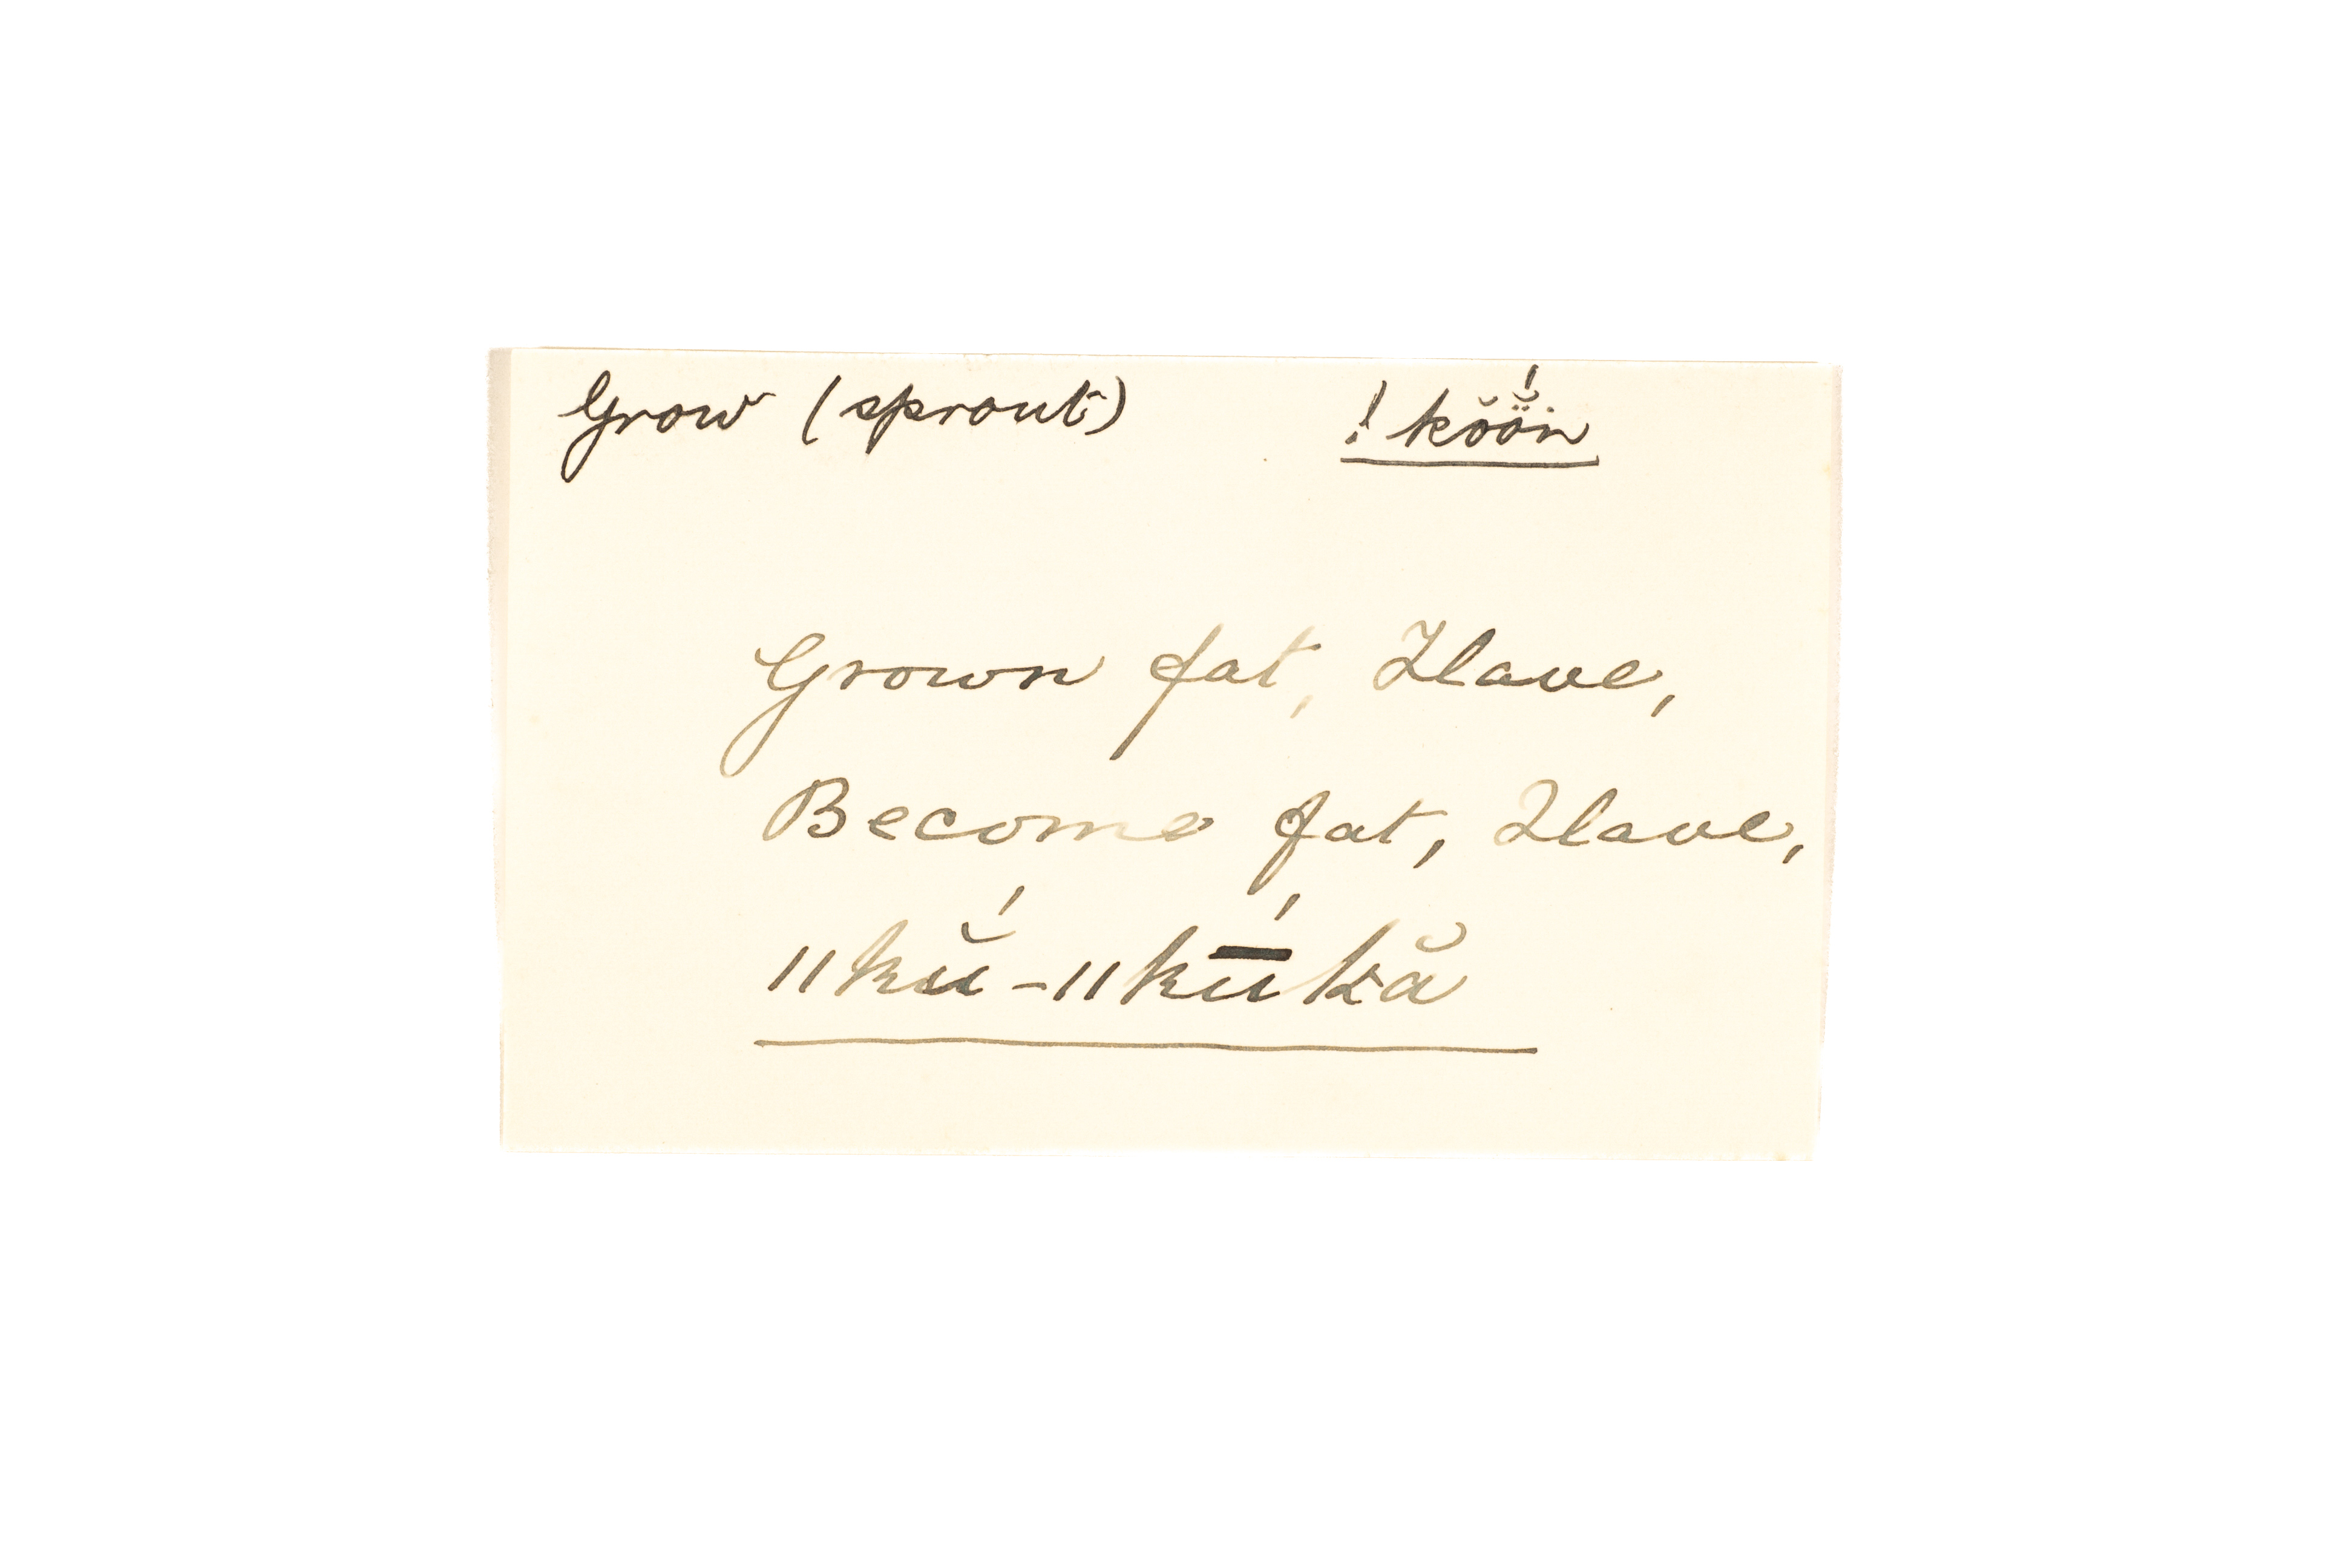 Grow (sprout) !kŏŏ̤́n
Grown fat, Have,
Become fat, Have,
ǁkŭ́-ǁkū́kă